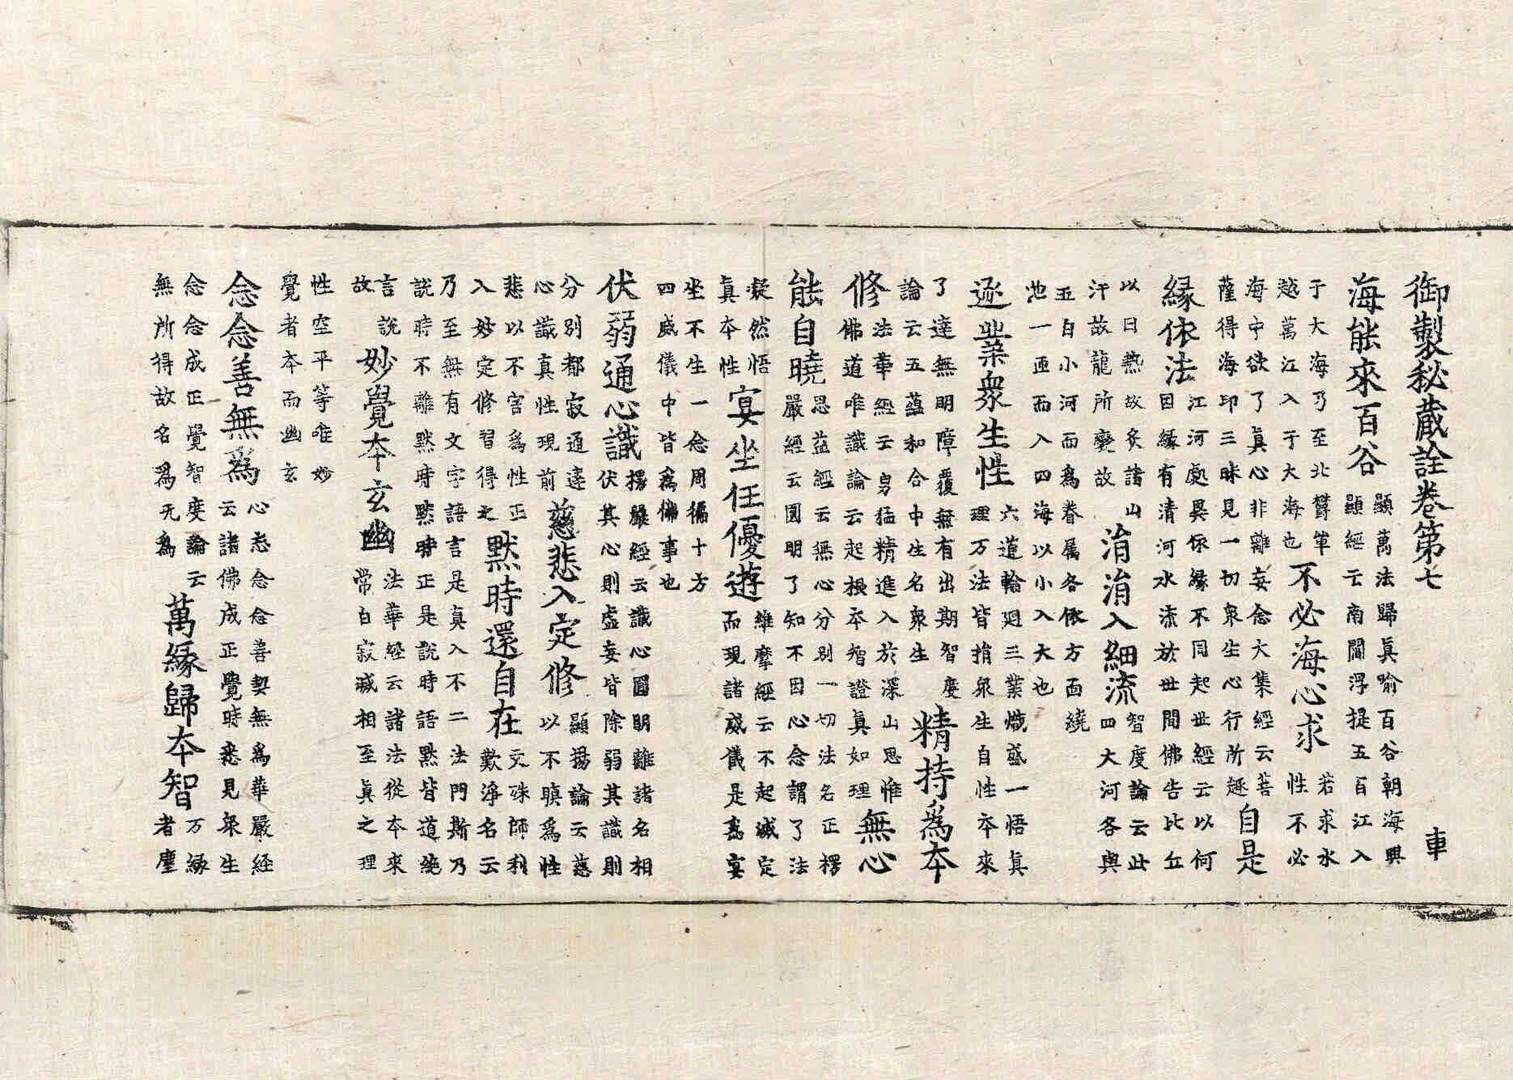 御製秘蔵詮卷第七 車
海能來百谷
顯萬法歸眞喻百谷朝海興
顯經云南閻浮提五百江入
于大海乃至北欝單
越萬江入于大海也
不必海心求
若求水
性不必
海中欲了眞心非離妄念大集經云菩
薩得海印三昧見一切衆生心行所趣
自是
縁依法
江河處異依縁不同起世經云以何
因縁有清河水流於世間佛告比丘
以日熱故炙諸山
汗故龍所變故
涓涓入細流
智度論云此
四大河各與
五百小河而爲眷属各依方面繞
池一匝而入四海以小入大也
逐業衆生性
六道輪廻三業熾盛一悟眞
理万法皆捐衆生自性夲來
了達無明障覆無有出期智度
論云五蘊和合中生名衆生
精持爲夲
修
法華經云勇猛精進入於深山思惟
佛道唯識論云起根夲智證眞如理
無心
能自曉
思益經云無心分别一切法名正楞
嚴經云圓明了知不因心念謂了法
凝然悟
眞夲性
宴坐任優遊
維摩經云不起滅定
而現諸威儀是爲宴
坐不生一念周徧十方
四威儀中皆爲佛事也
伏弱通心識
楞嚴經云識心圓明離諸名相
伏其心則虛妄皆除弱其識則
分别都寂通達
心識真性現前
慈悲入定修
顯揚論云慈
以不瞋爲性
悲以不害爲性正
入妙定修習得之
默時還自在
文殊師利
歎淨名云
乃至無有文字語言是真入不二法門斯乃
説時不離黙時黙時正是説時語黙皆道絶
言説
故
妙覺夲玄幽
法華經云諸法從夲來
常自寂滅相至眞之理
性空平等唯妙
覺者夲而幽玄
念念善無爲
心念念善契無爲華嚴経
云諸佛成正覺時悉見衆生
念念成正覺智度論云
無所得故名爲无爲
萬縁歸夲智
万縁
者塵